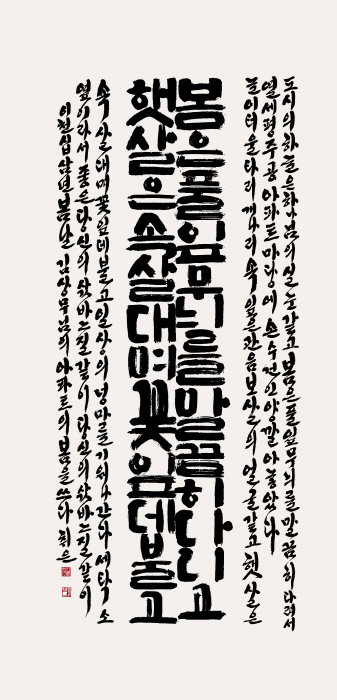 도시의 하늘은 하나님의 실눈 같고 봄은 풀잎무늬를 말끔히 다려서
열세평 주공아파트 마당에 손수건인양 깔아 놓았다
놀이터 울타리 개나리 속잎은 관음보살의 얼굴 같고 햇살은
봄은 풀잎무늬를 말끔히 다리고
햇살은 속살대며 꽃잎 데불고
속살대며 꽃잎 데불고 일상의 넝마를 기워 나간다 세탁소
옆이라서 좋은 당신의 삶 바느질 같이 당신의 삶 바느질 같이
이천십삼년 봄날 님의 아파트의 봄을 쓰다